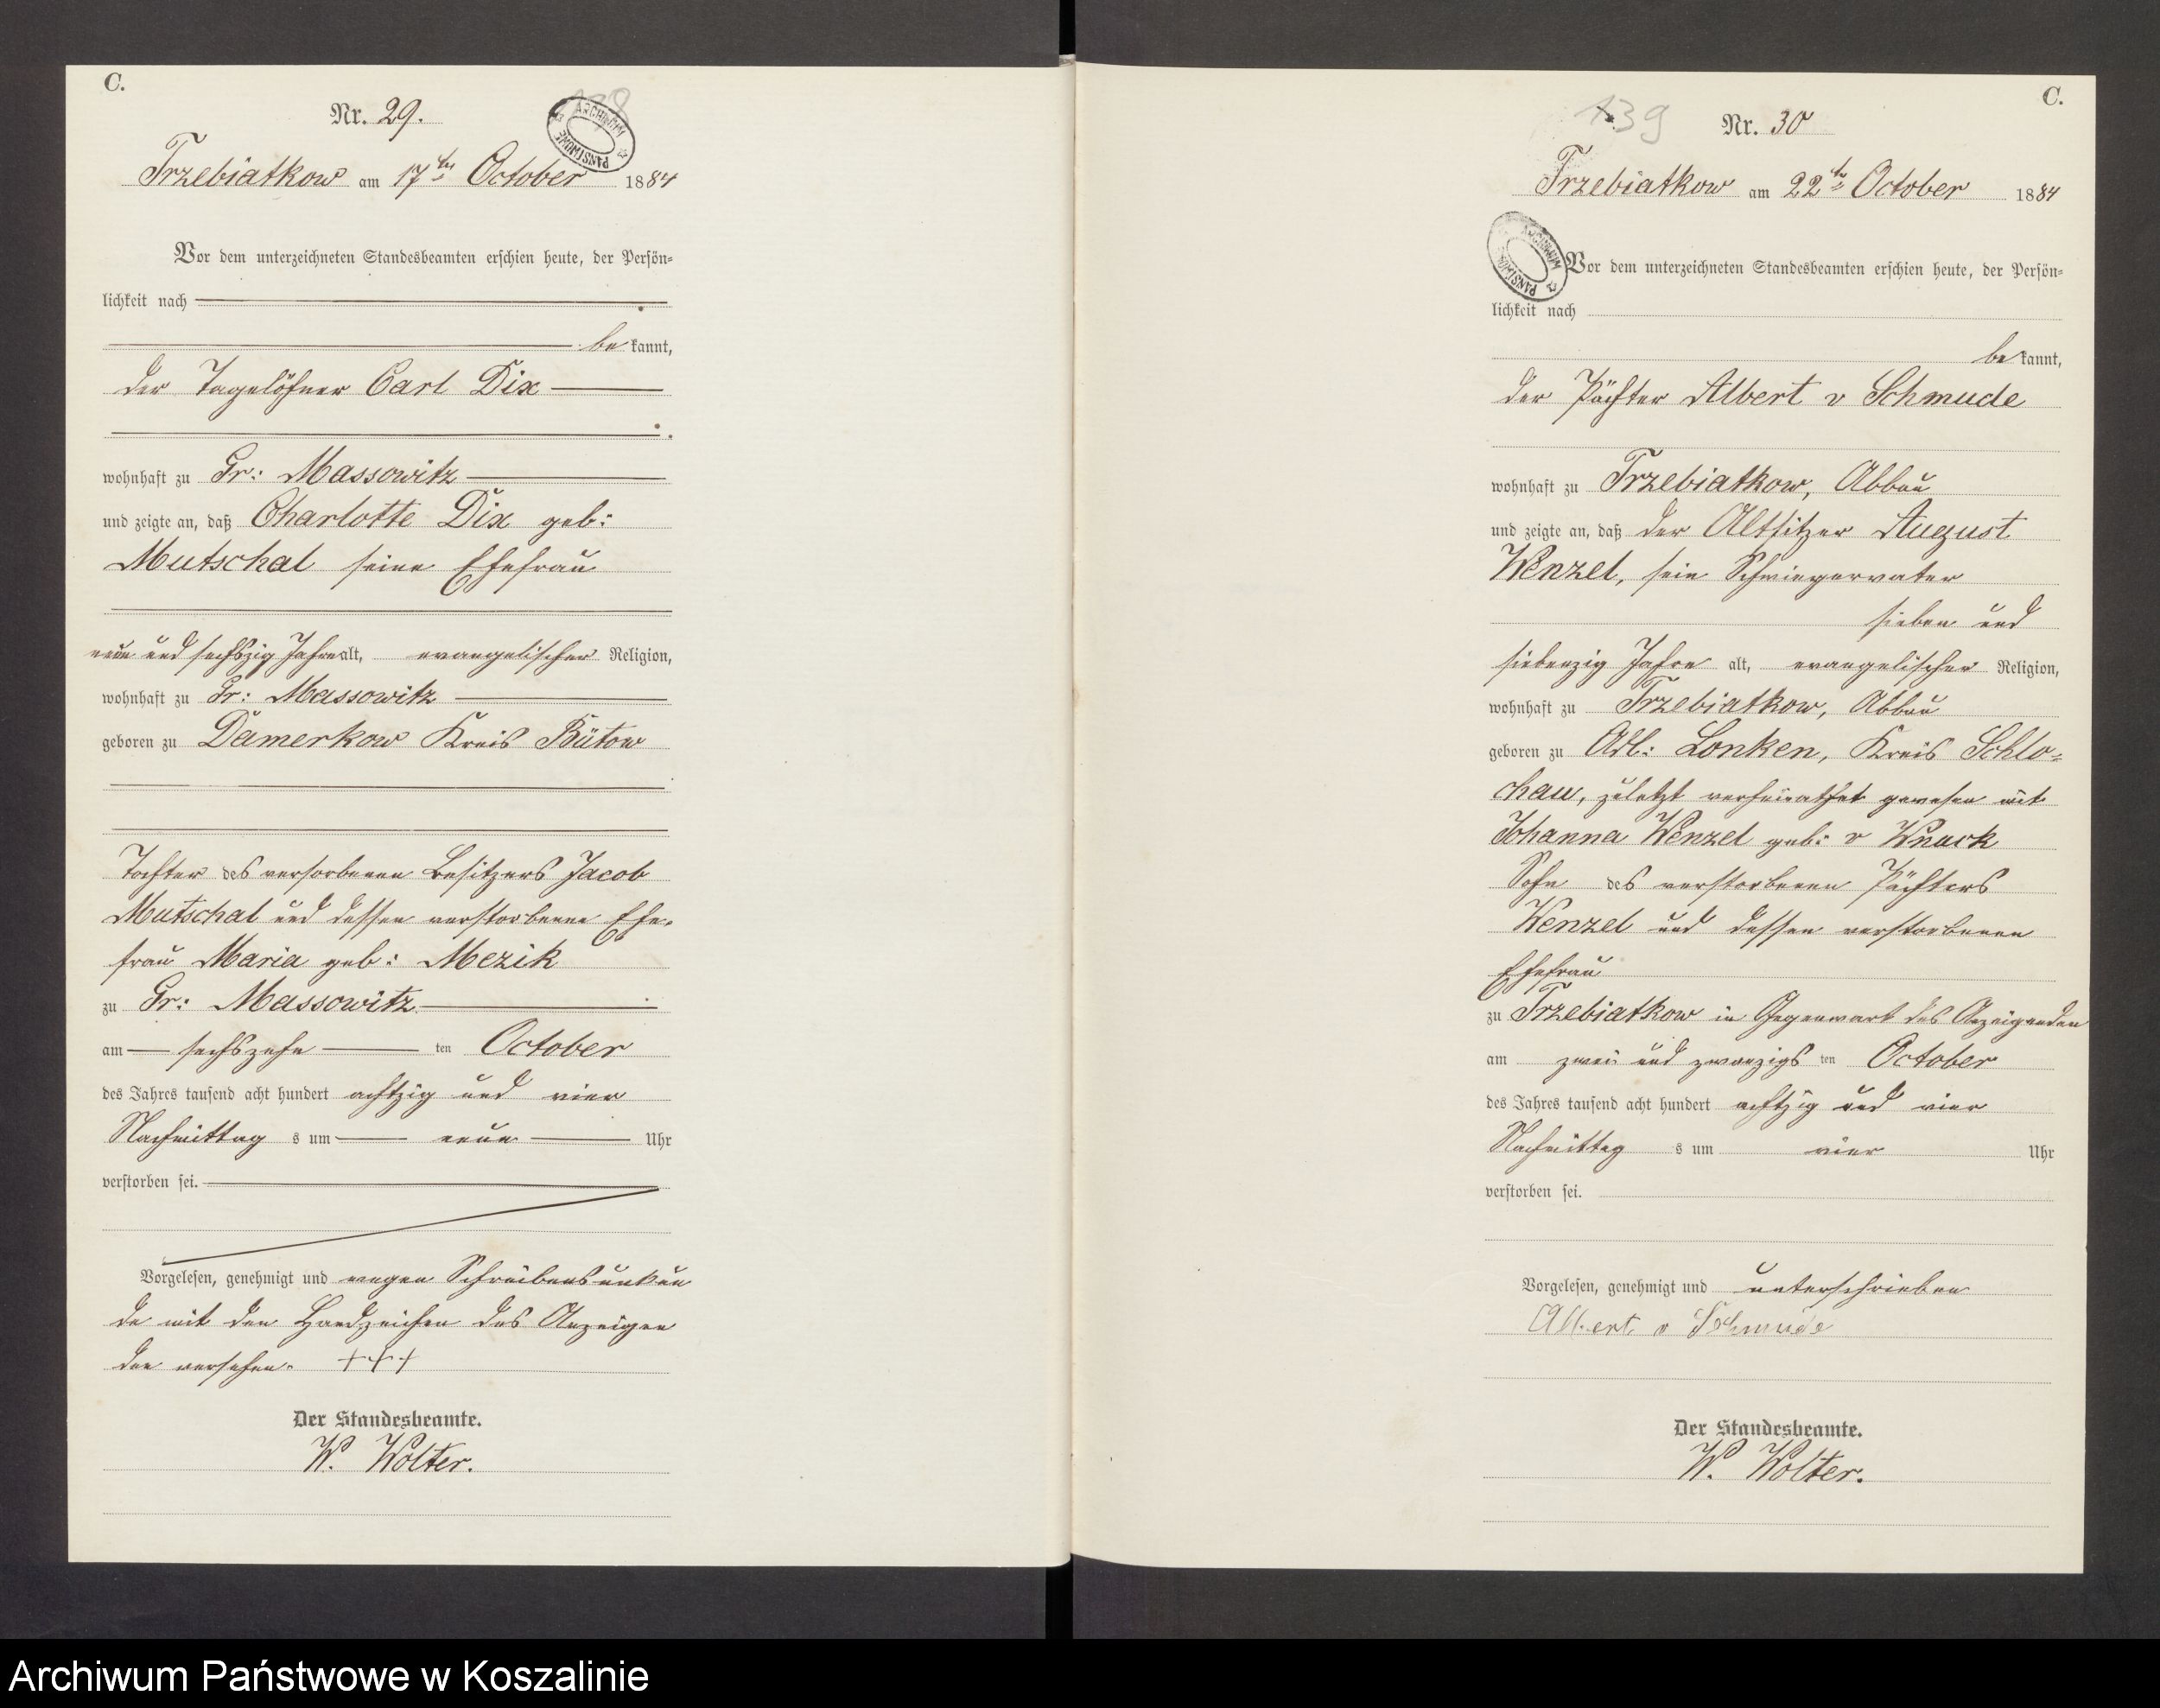 C.
Nr. 29.
138
ARCHIWUM PAŃSTWOWE
Trzebiatkow am 17ten October 1884
Vor dem unterzeichneten Standesbeamten erschien heute, der Persön=
lichkeit nach
be kannt,
der Tagelöhner Carl Dix
wohnhaft zu Gr: Massowitz
und zeigte an, daß Charlotte Dix geb:
Mutschal seine Ehefrau
neun und sechszig Jahre alt, evangelischer Religion,
wohnhaft zu Gr: Massowitz
geboren zu Damerkow Kreis Bütow
Tochter des versorbenen Besitzers Jacob
Mutschal und dessen verstorbene Ehe-
frau Maria geb: Mezik
zu Gr: Massowitz
am sechszehn ten October
des Jahres tausend acht hundert achtzig und vier
Nachmittag s um neun Uhr
verstorben sei.
Vorgelesen, genehmigt und wegen Schreibensunkun
de mit den Handzeichen des Anzeigen
den versehen. +++
Der Standesbeamte.
W. Wolter.
C.
139
Nr. 30
Trzebiatkow am 22ten October 1884
ARCHIWUM PAŃSTWOWE
Vor dem unterzeichneten Standesbeamten erschien heute, der Persön=
lichkeit nach
be kannt,
der Pächter Albert v Schmude
wohnhaft zu Trzebiatkow, Abbau
und zeigte an, daß der Altsitzer August
Wenzel, sein Schwiegervater
sieben und
siebenzig Jahre alt, evangelischer Religion,
wohnhaft zu Trzebiatkow, Abbau
geboren zu Adl: Lonken, Kreis Schlo=
chau, zuletzt verheirathet gewesen mit
Johanna Wenzel geb: v Wnuck
Sohn des verstorbenen Pächters
Wenzel und dessen verstorbenen
Ehefrau
zu Trzebiatkow in Gegenwart des Anzeigenden
am zwei und zwanzigs ten October
des Jahres tausend acht hundert achtzig und vier
Nachmittag s um vier Uhr
verstorben sei.
Vorgelesen, genehmigt und unterschrieben
Albert v Schmude
Der Standesbeamte.
W. Wolter.
Archiwum Państwowe w Koszalinie